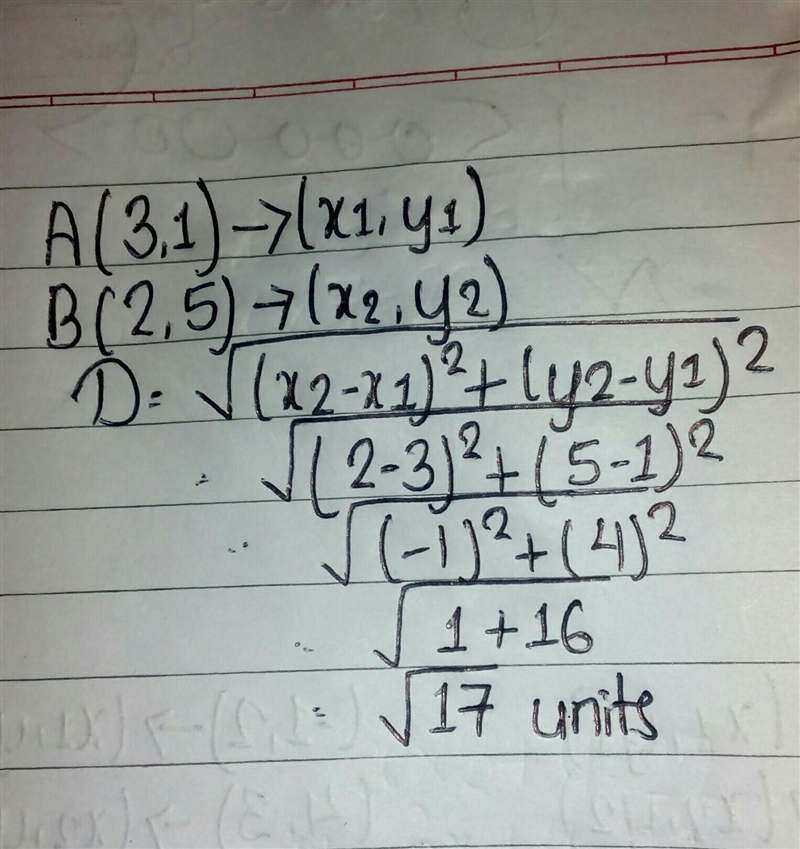 A(3,1)→(x1,y1)
B(2,5)→(x2,y2)
D=√(x2-x1)²+(y2-y1)²
=√(2-3)²+(5-1)²
=√(-1)²+(4)²
=√1+16
=√17 units